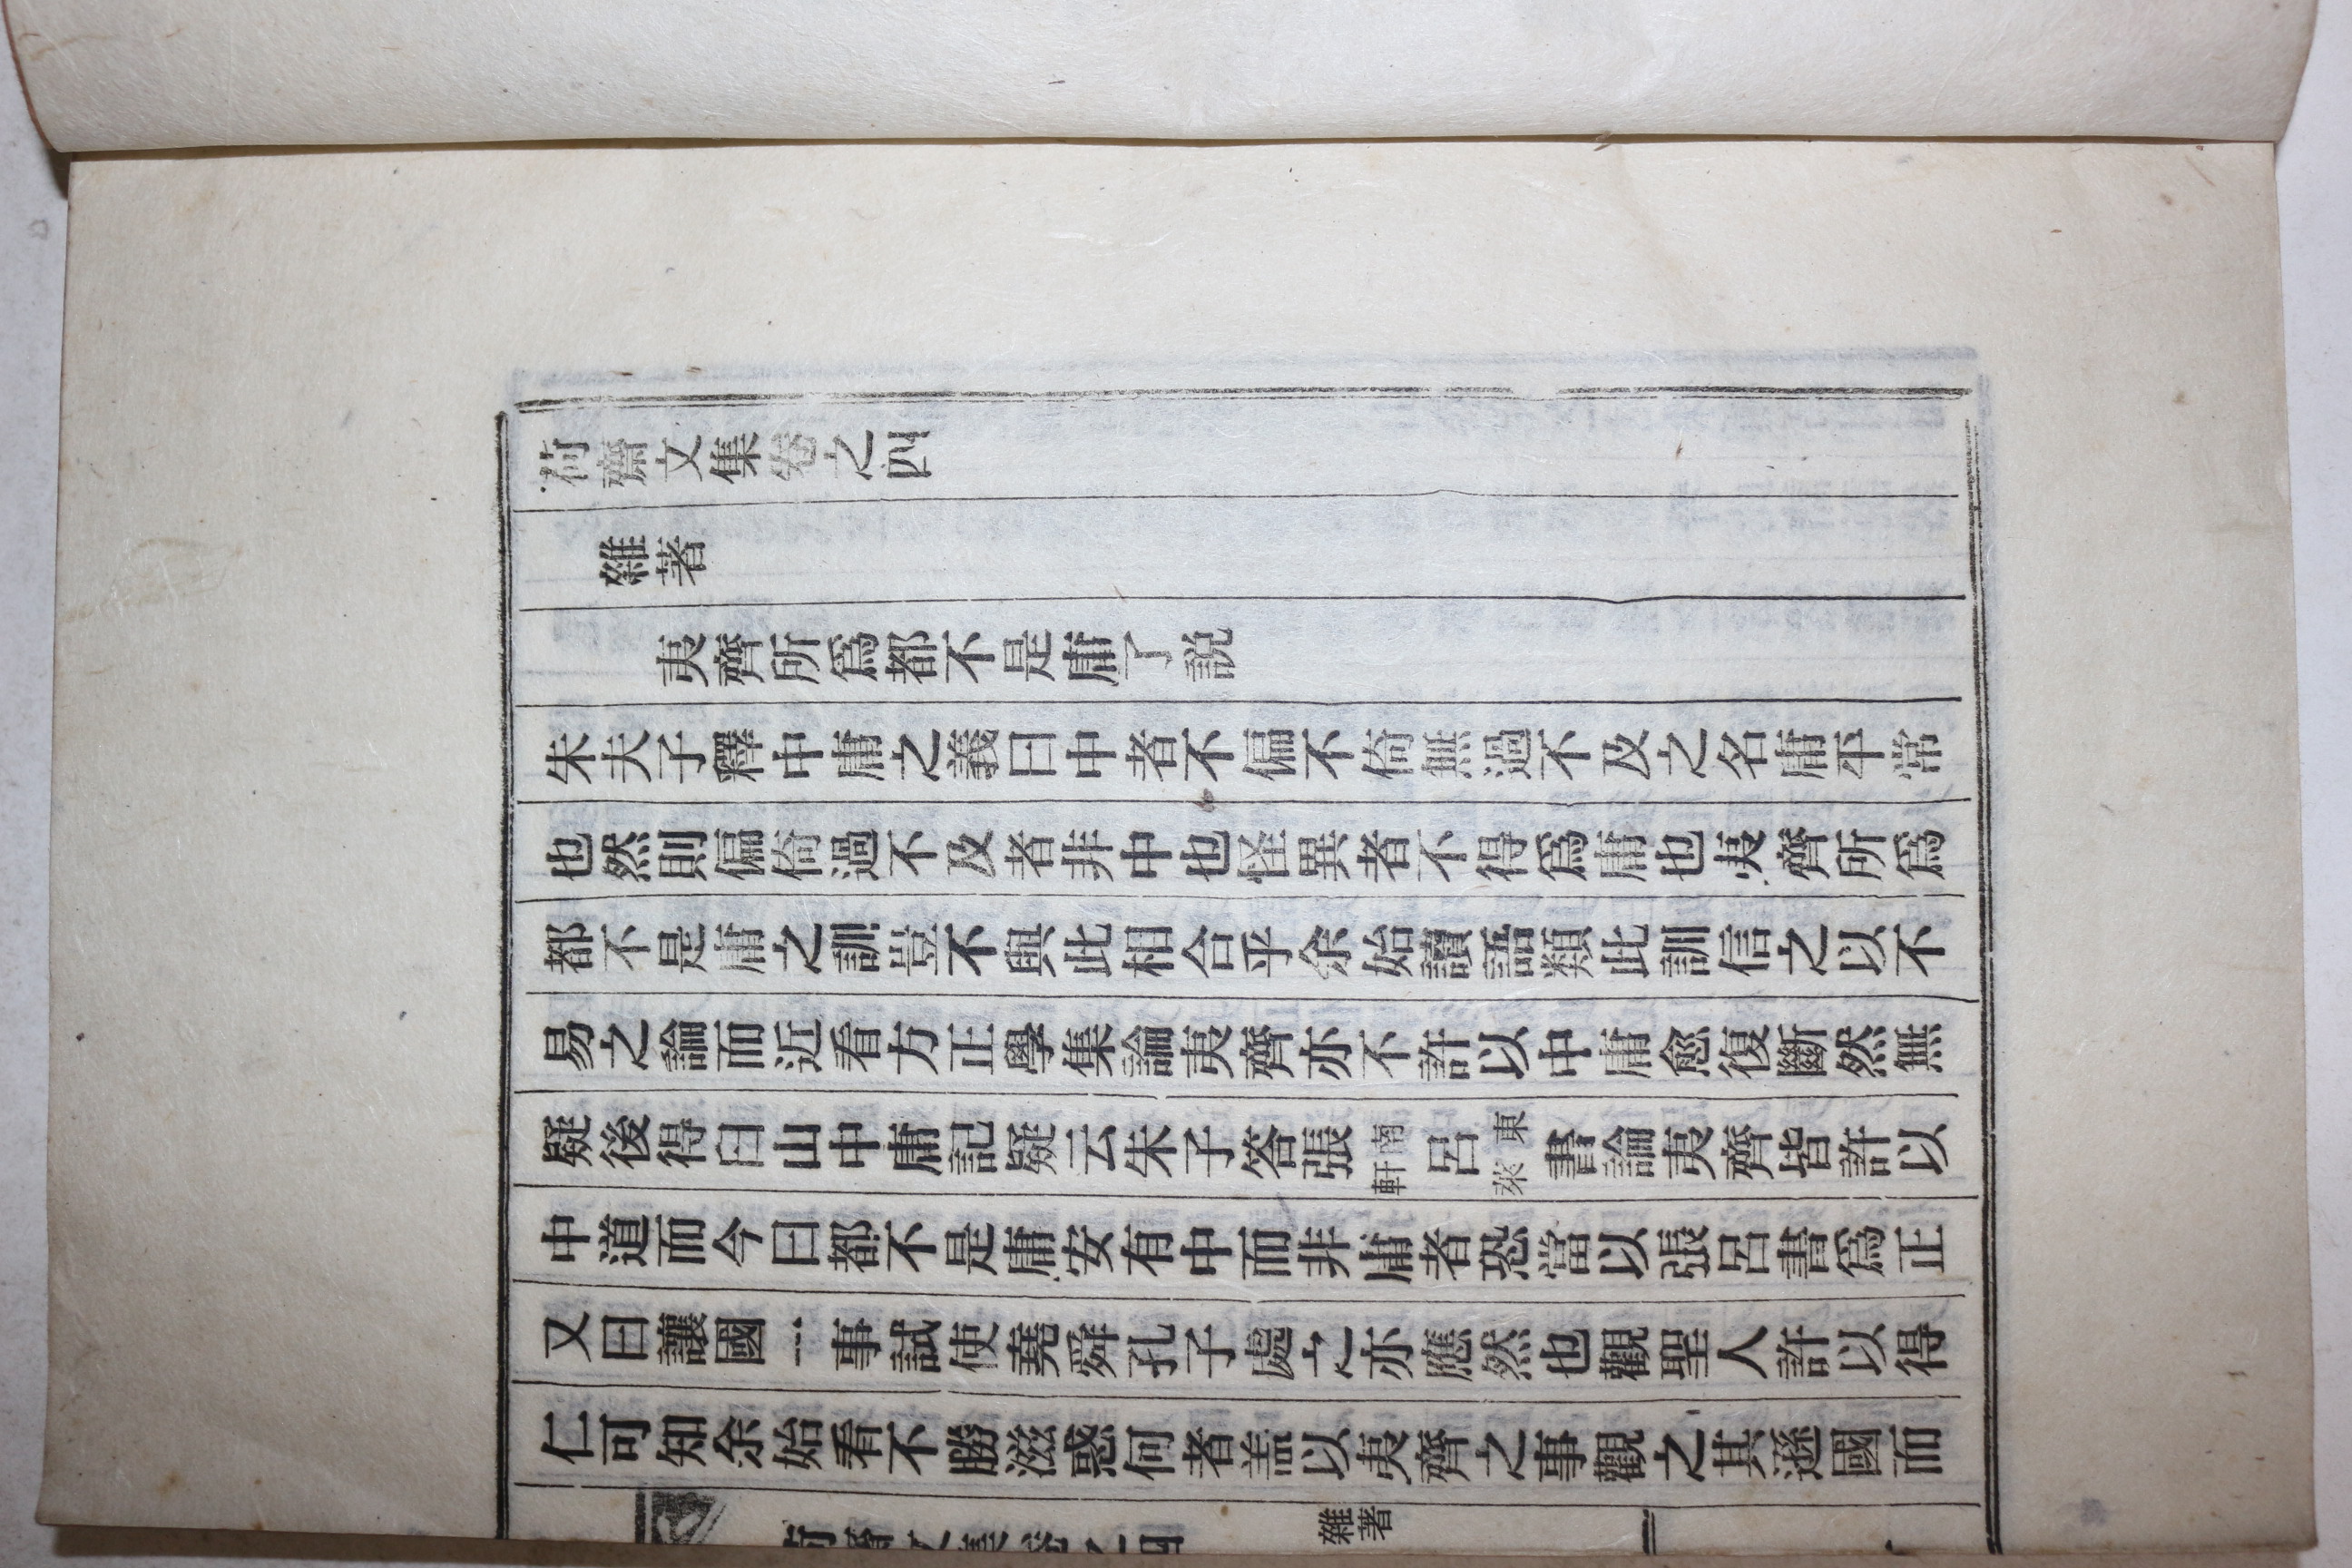 荷齋文集卷之四
雜著
夷齊所爲都不是庸了説
朱夫子釋中庸之義曰中者不偏不倚無過不及之名庸平常
也然則偏倚過不及者非中也怪異者不得爲庸也夷齊所爲
都不是庸之訓豈不與此相合乎余始讀語類此訓信之以不
易之論而近看方正學集論夷齊亦不許以中庸愈復斷然無
疑後得臼山中庸記疑云朱子答張南軒呂東萊書論夷齊皆許以
中道而今曰都不是庸安有中而非庸者恐當以張呂書爲正
又曰讓國一事試使堯舜孔子處之亦應然也觀聖人許以得
仁可知余始看不勝滋惑何者盖以夷齊之事觀之其遜國而
荷齋文集卷之四
雜著